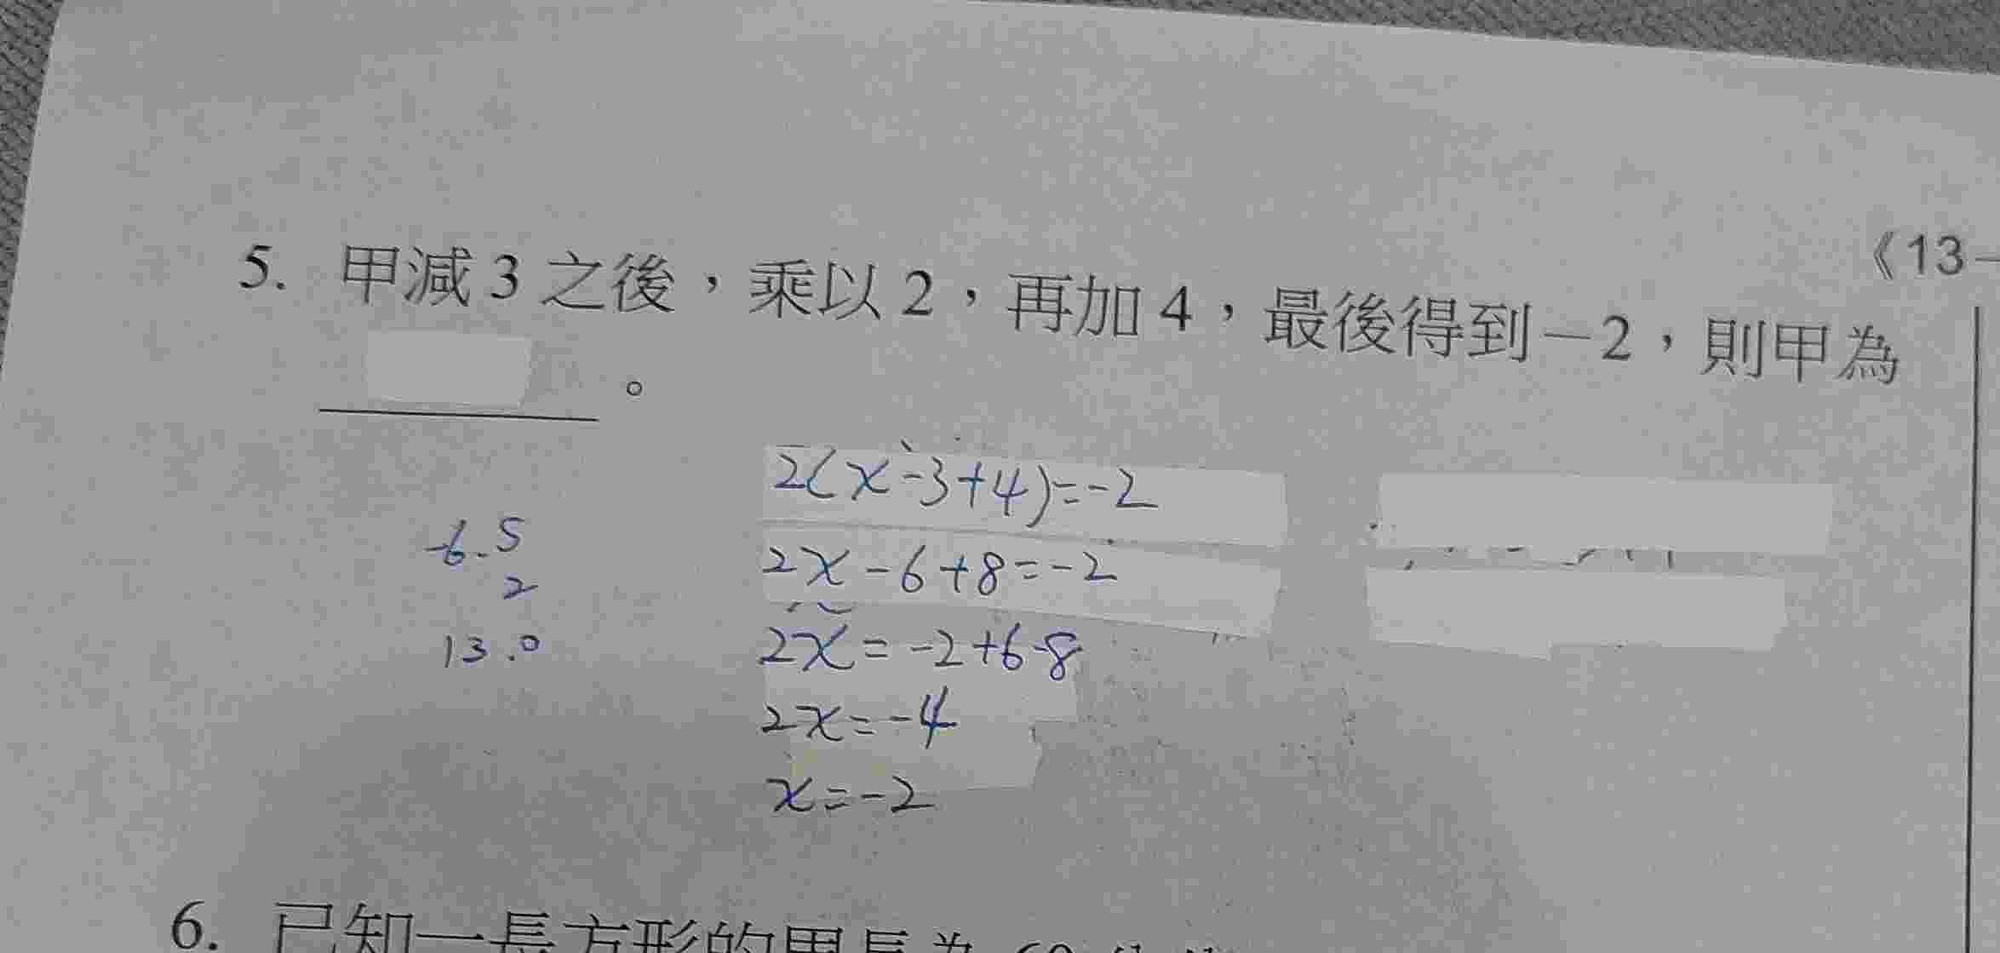 《13-
5. 甲減3之後，乘以2，再加4，最後得到－2，則甲為
。
2(x-3+4)=-2
2x-6+8=-2
2x=-2+6-8
2x=-4
x=-2
-6.5
2
13.0
6. 已知一長方形的周長為 60